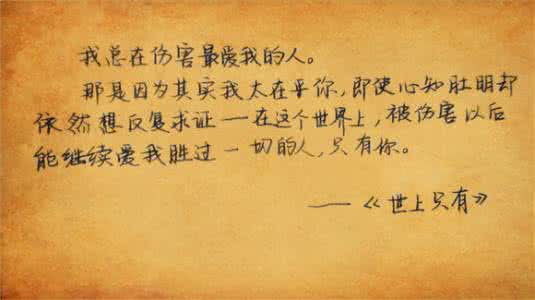 我总在伤害最爱我的人。
那是因为其实我太在乎你，即使心知肚明却
依然想反复求证——在这个世界上，被伤害以后
能继续爱我胜过一切的人，只有你。
——《世上只有》